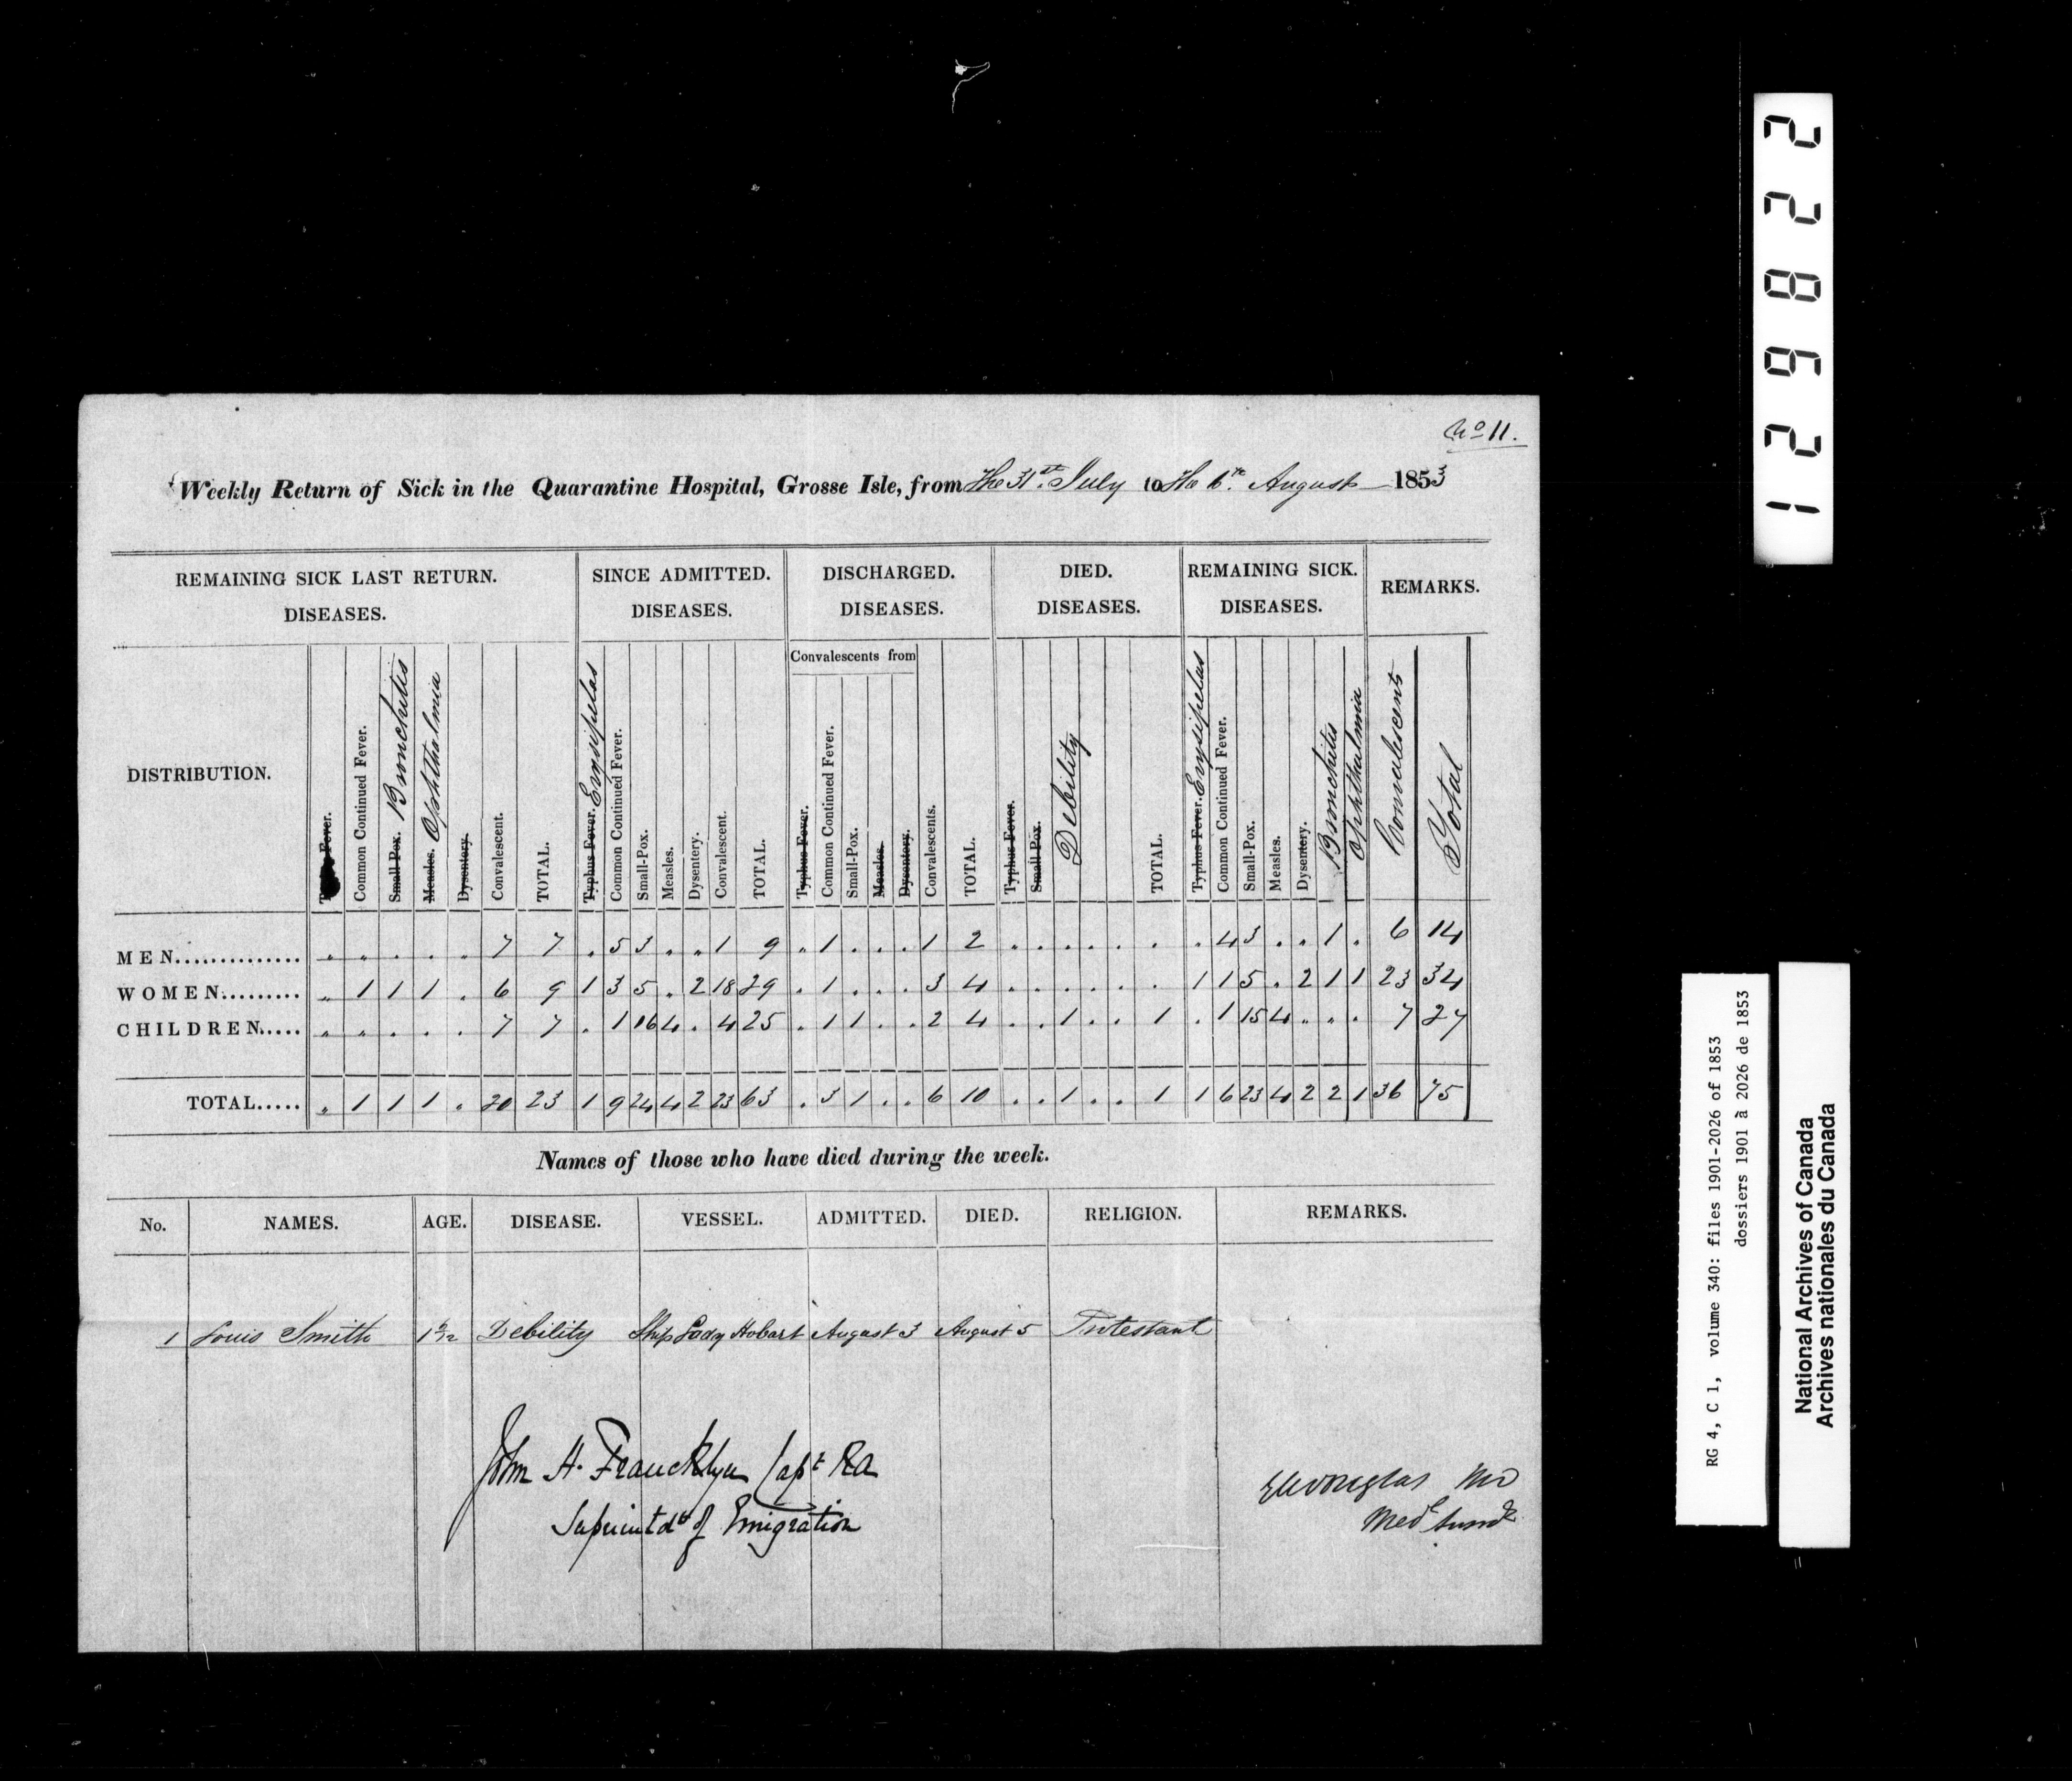 No 11.
Weekly Return of Sick in the Quarantine Hospital, Grosse Isle, from The 31st July to The 6th August 1853
REMAINING SICK LAST RETURN. SINCE ADMITTED. DISCHARGED. DIED. REMAINING SICK. REMARKS.
DISEASES. DISEASES. DISEASES. DISEASES. DISEASES.
Convalescents from
DISTRIBUTION. Fever. Common Continued Fever. Small Pox. Bronchitis Measles. Ophthalmia Dysentery. Convalescent. TOTAL. Typhus Fever. Erysipelas Common Continued Fever. Small-Pox. Measles. Dysentery. Convalescent. TOTAL. Typhus Fever. Common Continued Fever. Small-Pox. Measles. Dysentery. Convalescents. TOTAL. Typhus Fever. Small Pox. Debility TOTAL. Typhus Fever. Erysipelas Common Continued Fever. Small-Pox. Measles. Dysentery. Bronchitis Ophthalmia Convalescents Total
MEN.............. „ „ . . „ 7 7 . 5 3 . „ 1 9 . 1 . . . 1 2 . . . . . . . 4 3 . . 1 . 6 14
WOMEN......... „ 1 1 1 . 6 9 1 3 5 . 2 18 29 . 1 . . . 3 4 . . . . . . 1 1 5 . 2 1 1 23 34
CHILDREN..... „ „ . . . 7 7 . 1 16 4 . 4 25 . 1 1 . . 2 4 . . 1 . . 1 . 1 15 4 „ . . 7 27
TOTAL..... „ 1 1 1 . 20 23 1 9 24 4 2 23 63 . 3 1 . . 6 10 . . 1 . . 1 1 6 23 4 2 2 1 36 75
Names of those who have died during the week.
No. NAMES. AGE. DISEASE. VESSEL. ADMITTED. DIED. RELIGION. REMARKS.
1 Louis Smith 1 Debility Ship Lady Hobart August 3 August 5 Protestant
John A. Francklyn Capt RA
Superintdt of Emigration
Douglas MD
Medl Supdt
129822
RG 4, C 1, volume 340: files 1901-2026 of 1853
dossiers 1901 à 2026 de 1853
National Archives of Canada
Archives nationales du Canada